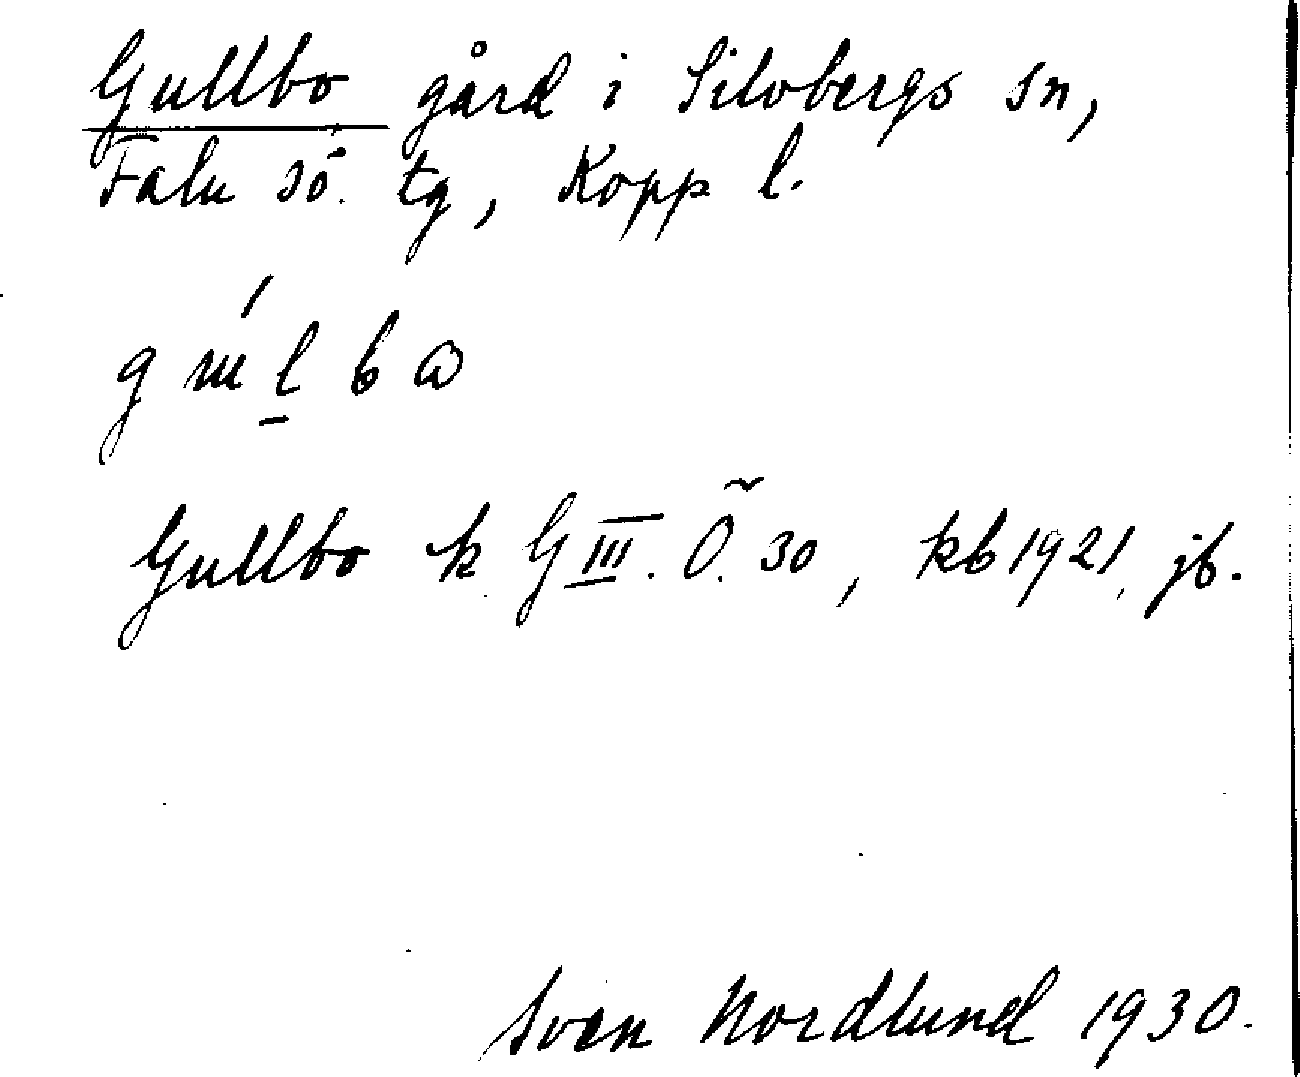 Gullbo gård i Silvbergs sn,
Falu sö. tg, Kopp l.
Gullbo k GIII. Ö. 30, kb 1921, jb.
Sven Nordlund 1930.